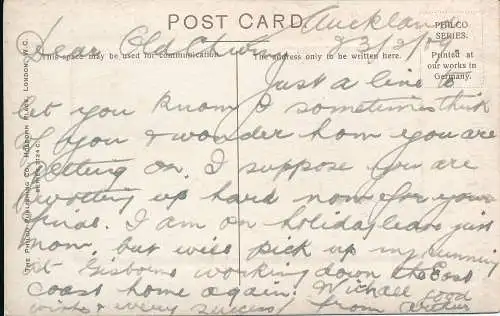 POST CARD.
PHILCO
SERIES.
Printed at
our works in
Germany.
This space may be used for communication.
The address only to be written here.
THE PHILCO PUBLISHING CO., HOLBORN PLACE, LONDON, W.C.
Auckland
23/3/09
Dear Old Chum
Just a line to
let you know I sometimes think
of you & wonder how you are
getting on. I suppose you are
swotting up hard now for your
I am on holiday leave just
now, but will pick up my
at Gisborne working down the East
Coast home again. With all good
wishes & every success from Arthur